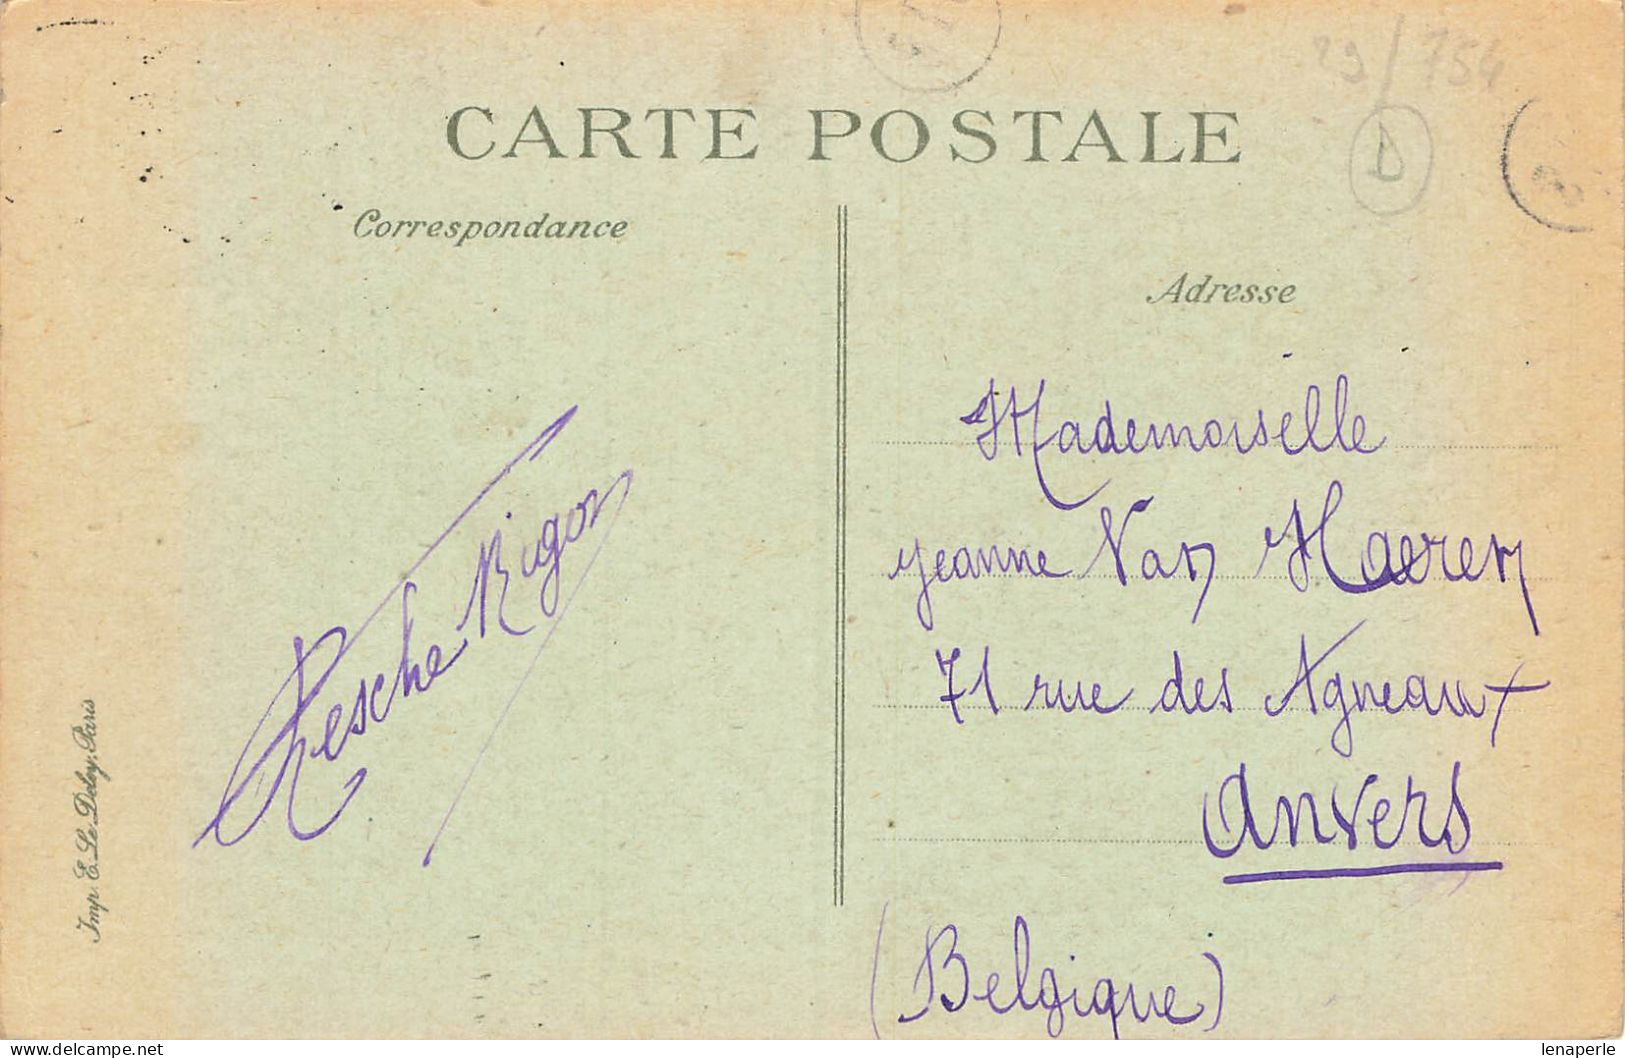 29/154
D
CARTE POSTALE
Correspondance
Adresse
Resche Rigon
Mademoiselle
Jeanne Van Haeren
71 rue des Agneaux
Anvers
(Belgique)
Imp. E. Le Deley, Paris
lenaperle